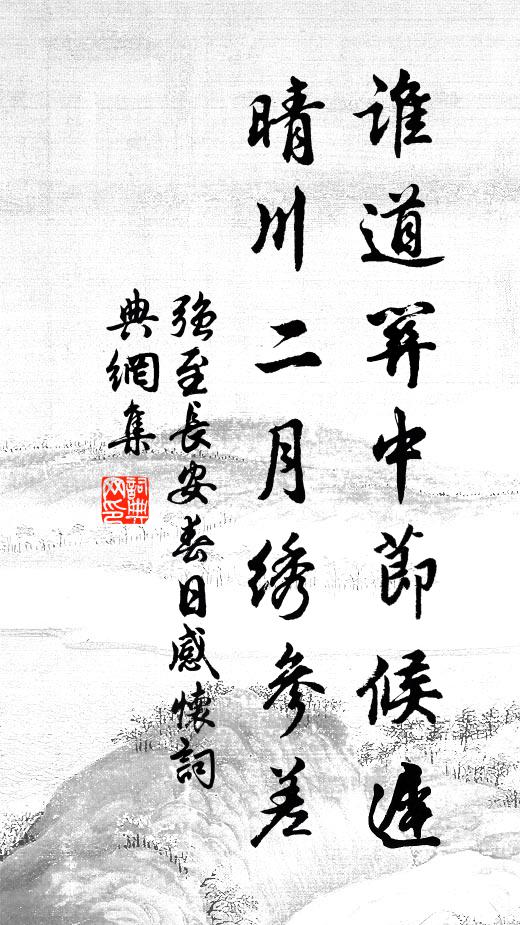 誰道關中節候遲
晴川二月綉參差
强至長安春日感懷詞
典網集
詞典
网印